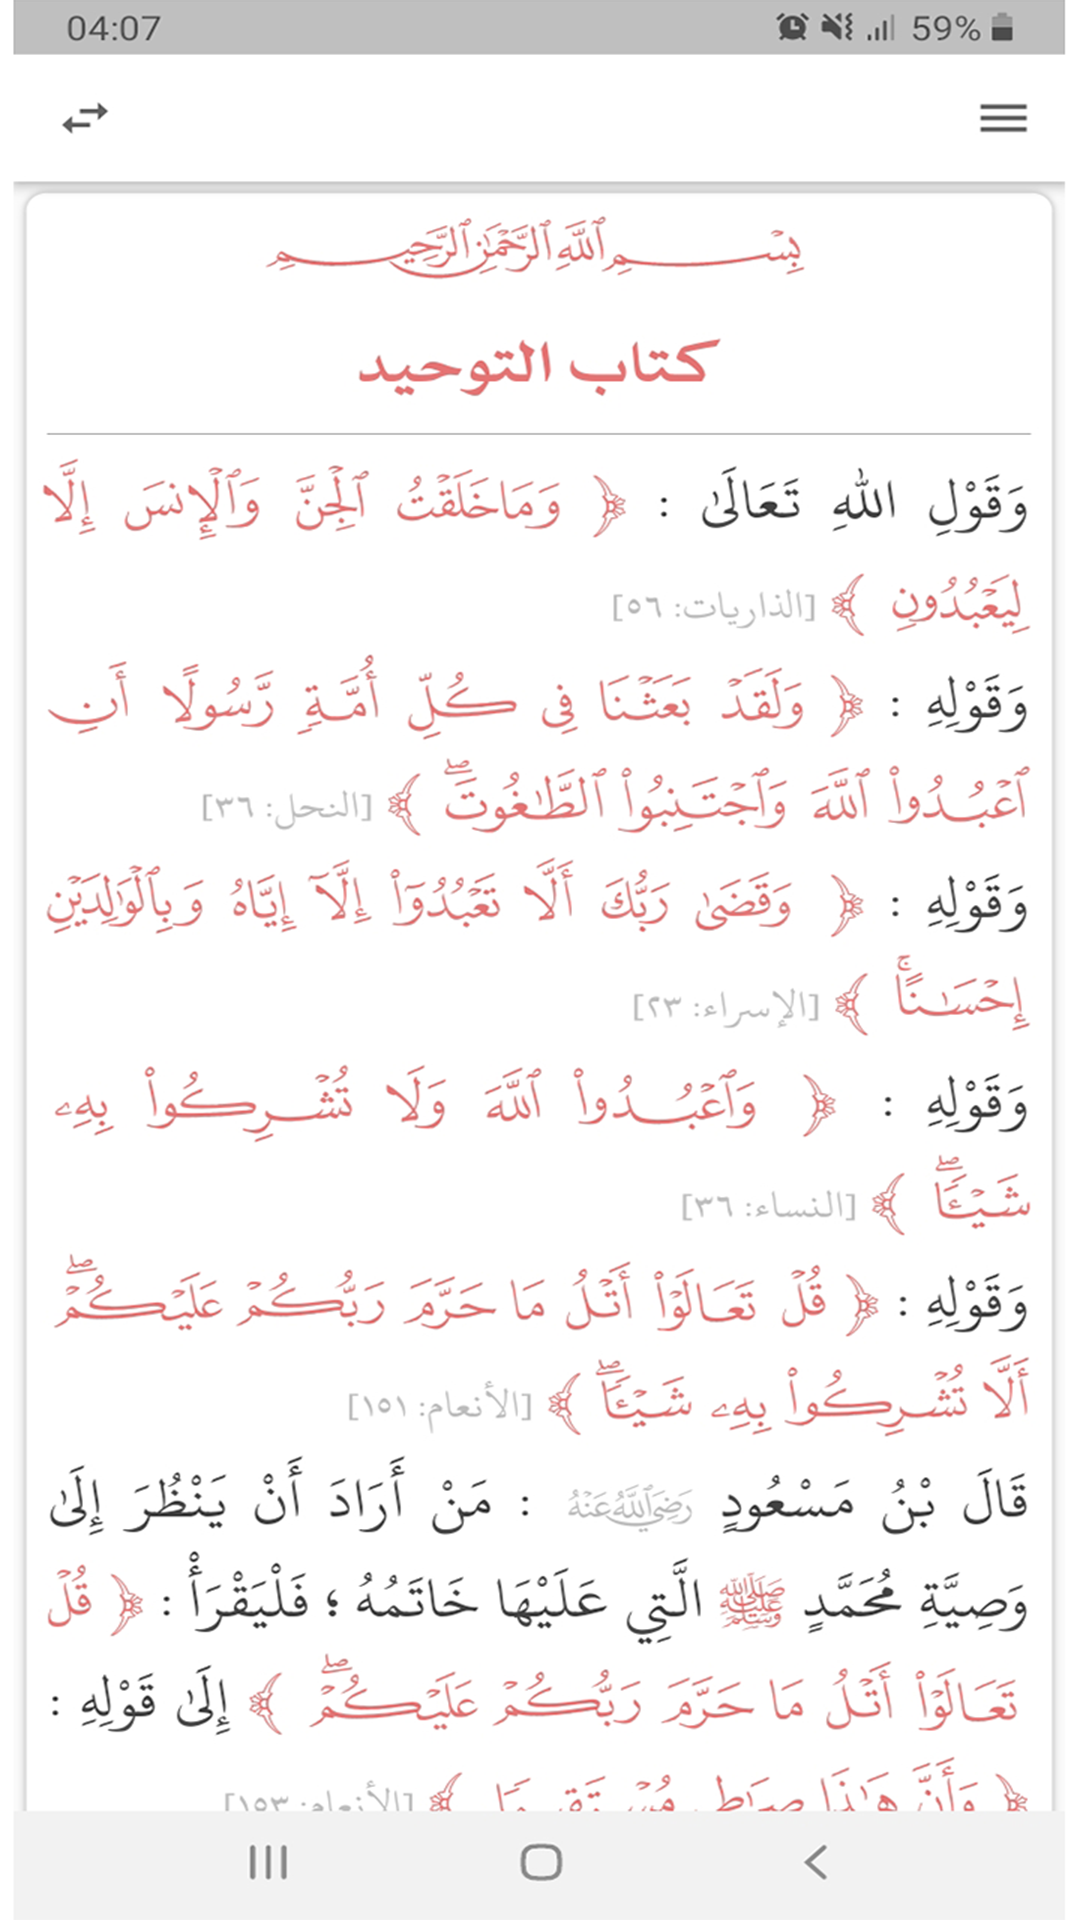 04:07 59%
بِسْمِ ٱللَّهِ ٱلرَّحْمَٰنِ ٱلرَّحِيمِ
كتاب التوحيد
وَقَوْلِ اللهِ تَعَالَىٰ : ﴿ وَمَا خَلَقْتُ ٱلْجِنَّ وَٱلْإِنسَ إِلَّا
لِيَعْبُدُونِ ﴾ [الذاريات: ٥٦]
وَقَوْلِهِ : ﴿ وَلَقَدْ بَعَثْنَا فِى كُلِّ أُمَّةٍ رَّسُولًا أَنِ
ٱعْبُدُوا۟ ٱللَّهَ وَٱجْتَنِبُوا۟ ٱلطَّٰغُوتَ ۖ ﴾ [النحل: ٣٦]
وَقَوْلِهِ : ﴿ وَقَضَىٰ رَبُّكَ أَلَّا تَعْبُدُوٓا۟ إِلَّآ إِيَّاهُ وَبِٱلْوَٰلِدَيْنِ
إِحْسَٰنًا ۚ ﴾ [الإسراء: ٢٣]
وَقَوْلِهِ : ﴿ وَٱعْبُدُوا۟ ٱللَّهَ وَلَا تُشْرِكُوا۟ بِهِۦ
شَيْـًٔا ۖ ﴾ [النساء: ٣٦]
وَقَوْلِهِ : ﴿ قُلْ تَعَالَوْا۟ أَتْلُ مَا حَرَّمَ رَبُّكُمْ عَلَيْكُمْ ۖ
أَلَّا تُشْرِكُوا۟ بِهِۦ شَيْـًٔا ۖ ﴾ [الأنعام: ١٥١]
قَالَ بْنُ مَسْعُودٍ رَضِيَ ٱللَّهُ عَنْهُ : مَنْ أَرَادَ أَنْ يَنْظُرَ إِلَىٰ
وَصِيَّةِ مُحَمَّدٍ ﷺ الَّتِي عَلَيْهَا خَاتَمُهُ ؛ فَلْيَقْرَأْ : ﴿ قُلْ
تَعَالَوْا۟ أَتْلُ مَا حَرَّمَ رَبُّكُمْ عَلَيْكُمْ ۖ ﴾ إِلَىٰ قَوْلِهِ :
﴿ وَأَنَّ هَٰذَا صِرَاطِى مُسْتَقِيمًا ﴾ [الأنعام: ١٥٣]